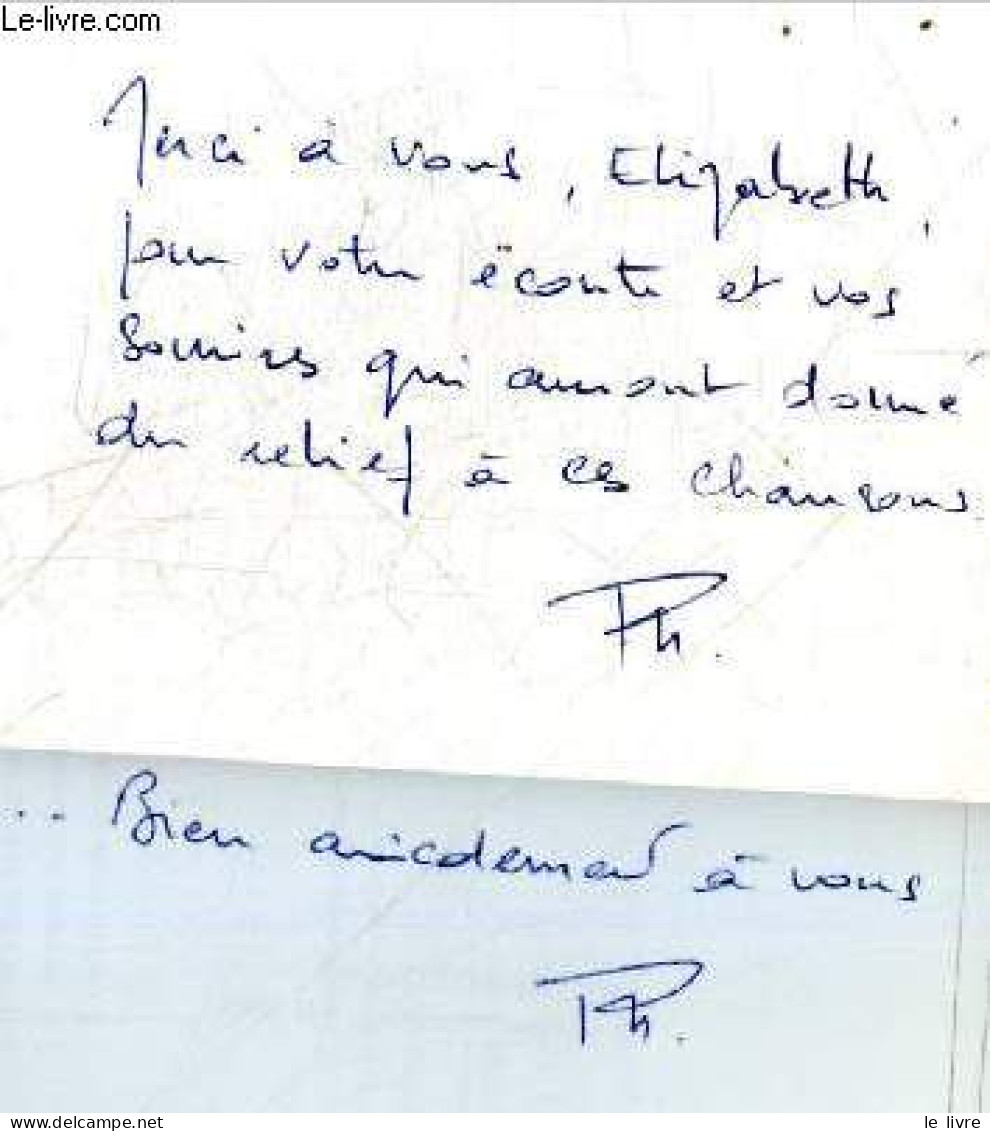 Le-livre.com
Merci à vous, Elizabeth,
pour votre écoute et vos
sourires qui auront donné
du relief à ces chansons
Ph.
.. Bien amicalement à vous
Ph.
www.delcampe.net
le livre